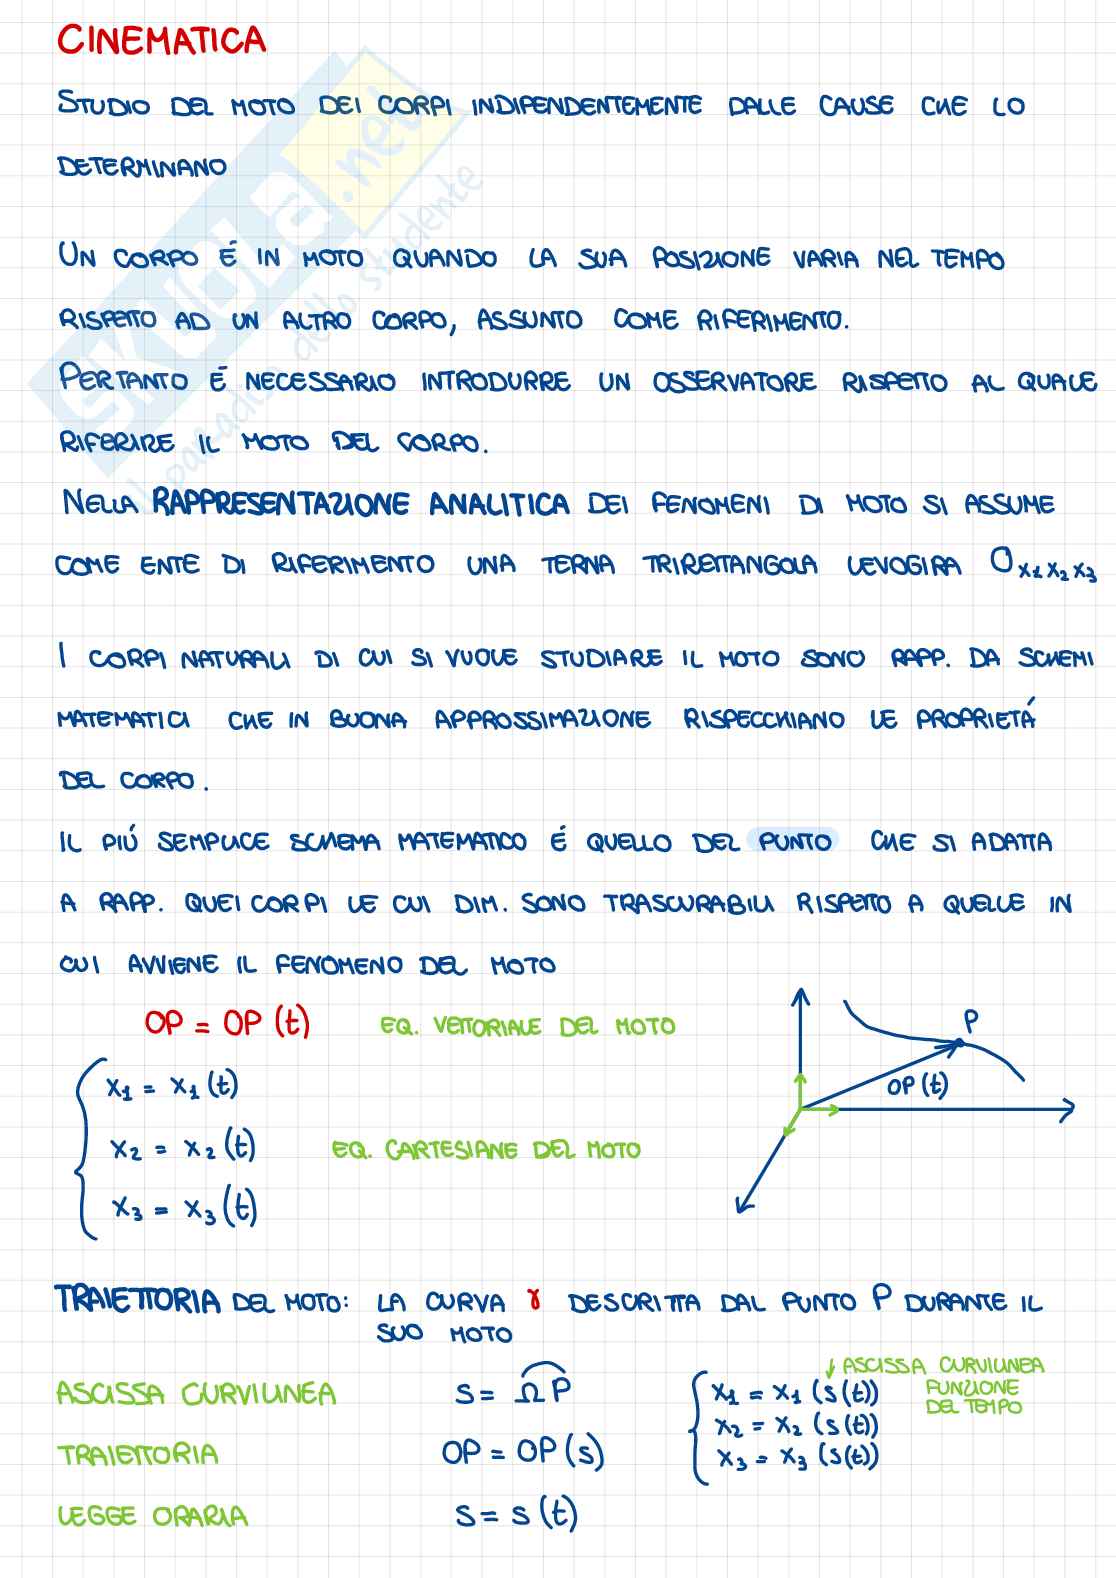 CINEMATICA
STUDIO DEL MOTO DEI CORPI INDIPENDENTEMENTE DALLE CAUSE CHE LO
DETERMINANO
UN CORPO É IN MOTO QUANDO LA SUA POSIZIONE VARIA NEL TEMPO
RISPETTO AD UN ALTRO CORPO, ASSUNTO COME RIFERIMENTO.
PERTANTO É NECESSARIO INTRODURRE UN OSSERVATORE RISPETTO AL QUALE
RIFERIRE IL MOTO DEL CORPO.
NELLA RAPPRESENTAZIONE ANALITICA DEI FENOMENI DI MOTO SI ASSUME
COME ENTE DI RIFERIMENTO UNA TERNA TRIRETTANGOLA LEVOGIRA O x₁ x₂ x₃
I CORPI NATURALI DI CUI SI VUOLE STUDIARE IL MOTO SONO RAPP. DA SCHEMI
MATEMATICI CHE IN BUONA APPROSSIMAZIONE RISPECCHIANO LE PROPRIETÁ
DEL CORPO.
IL PIÚ SEMPLICE SCHEMA MATEMATICO É QUELLO DEL PUNTO CHE SI ADATTA
A RAPP. QUEI CORPI LE CUI DIM. SONO TRASCURABILI RISPETTO A QUELLE IN
CUI AVVIENE IL FENOMENO DEL MOTO
OP = OP (t) EQ. VETTORIALE DEL MOTO
P
OP (t)
x₁ = x₁ (t)
x₂ = x₂ (t) EQ. CARTESIANE DEL MOTO
x₃ = x₃ (t)
TRAIETTORIA DEL MOTO: LA CURVA γ DESCRITTA DAL PUNTO P DURANTE IL
SUO MOTO
ASCISSA CURVILINEA s = ΩP
TRAIETTORIA OP = OP (s)
LEGGE ORARIA s = s (t)
↓ ASCISSA CURVILINEA
FUNZIONE
DEL TEMPO
x₁ = x₁ (s(t))
x₂ = x₂ (s(t))
x₃ = x₃ (s(t))
SKUOLA.net
il paradiso dello studente